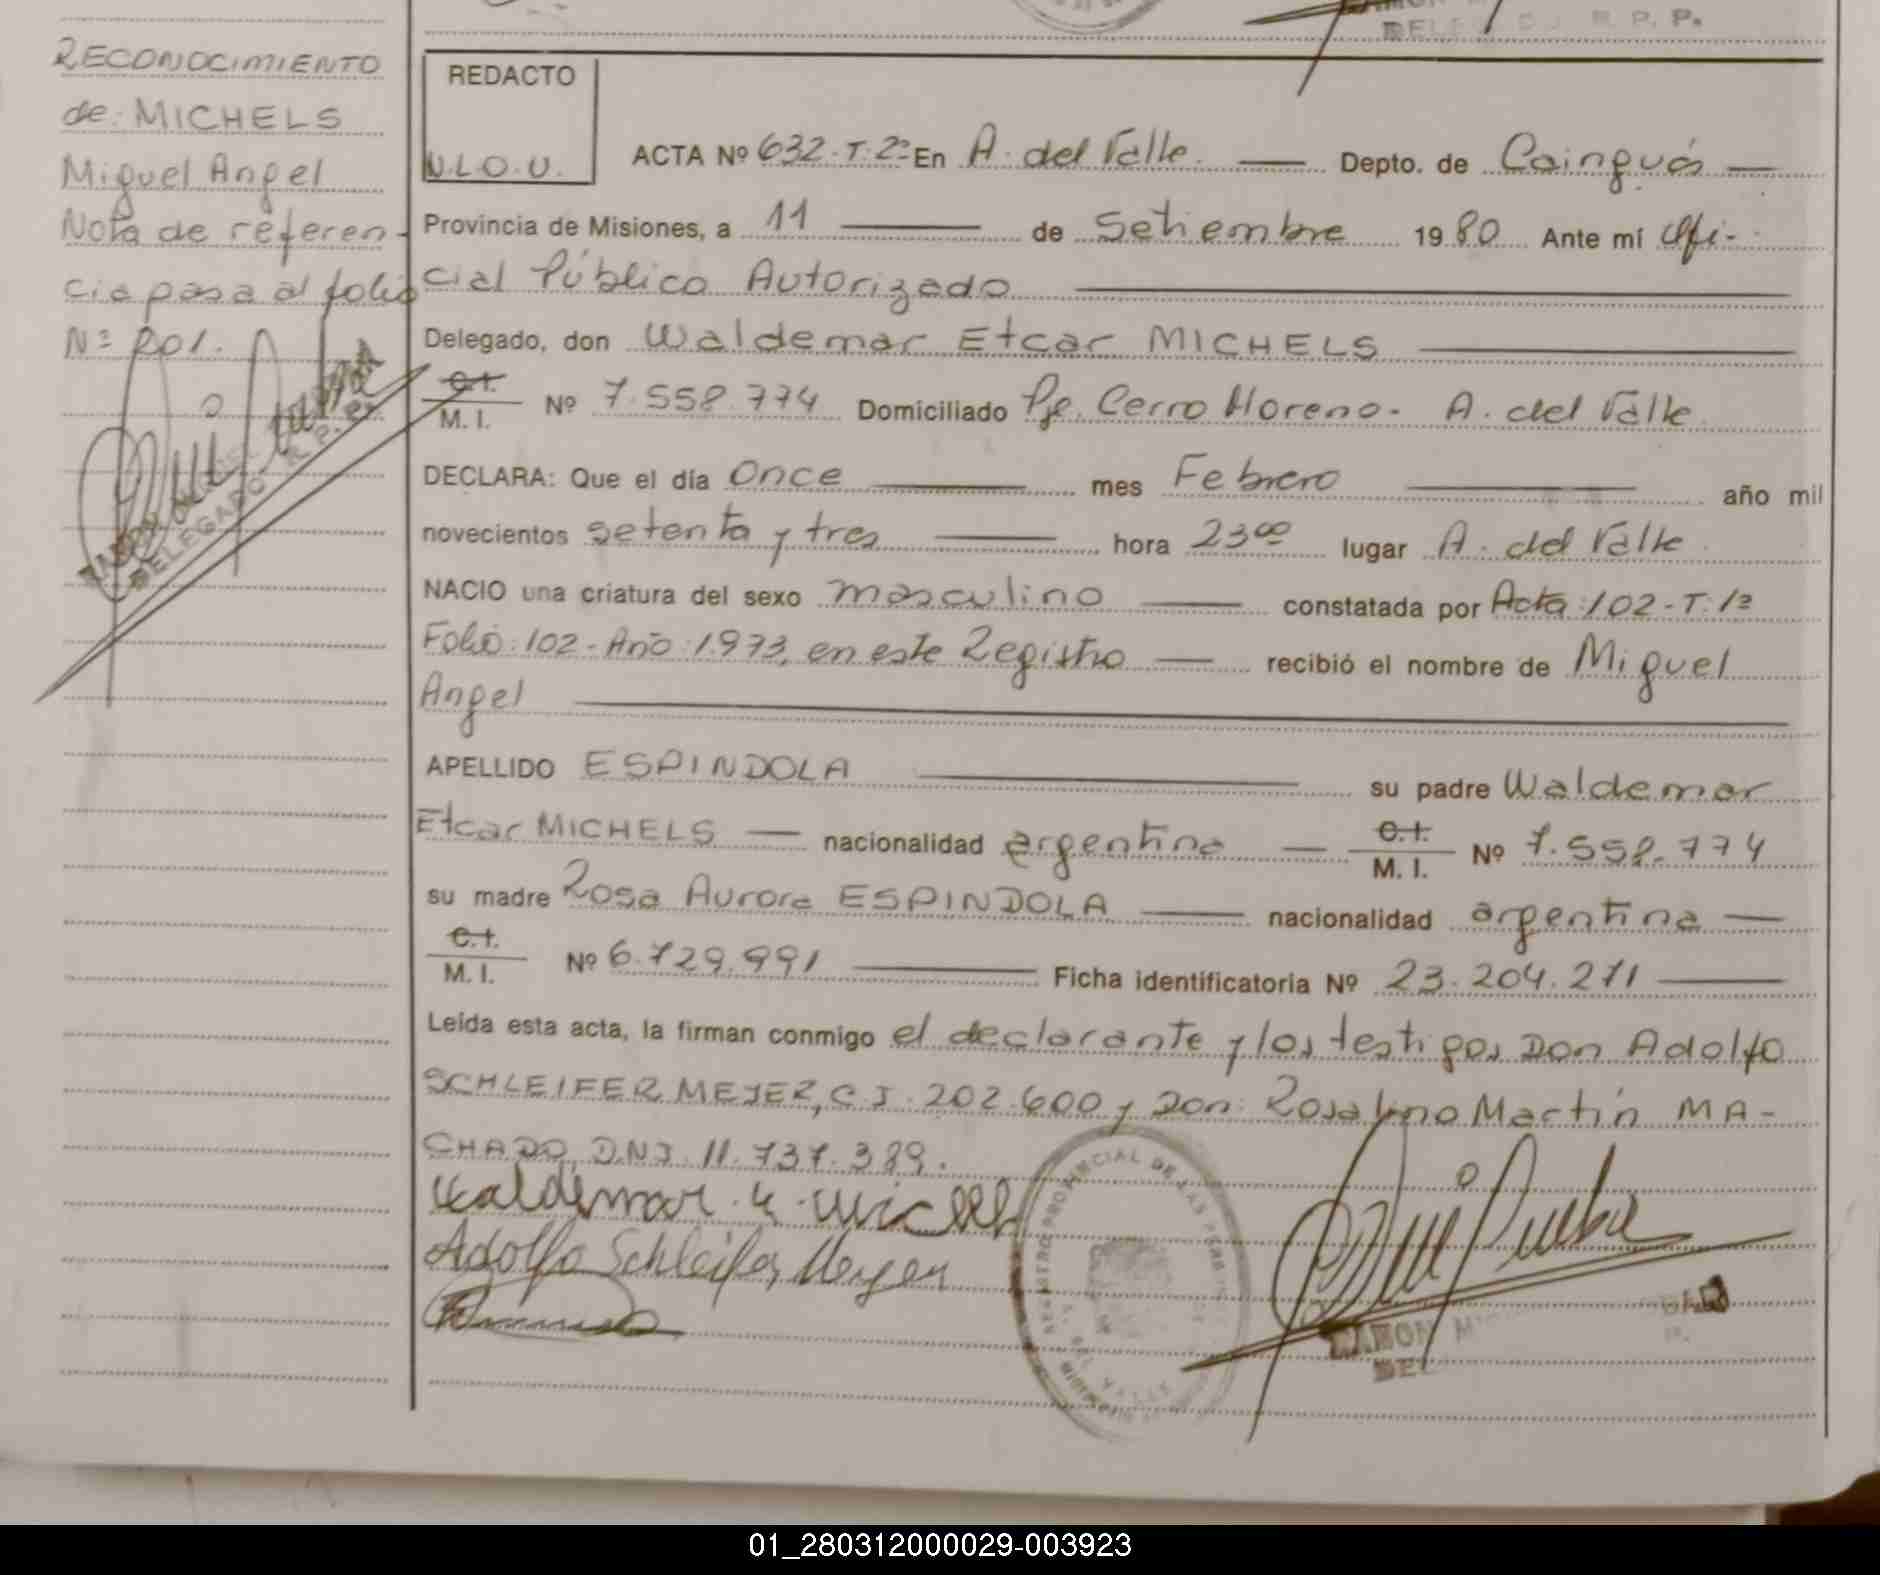 DELEGADO R. P. P.
RECONOCIMIENTO
de: MICHELS
Miguel Angel
Nota de referen-
cia pasa al folio
Nº 201.
DELEGADO R. P. P.
REDACTO
N.L.O.U.
ACTA Nº 632-T-2º En A. del Valle. Depto. de Cainguás
Provincia de Misiones, a 11 de Setiembre 1980 Ante mí Ofi-
cial Público Autorizado
Delegado, don Waldemar Etcar MICHELS
C.I. M. I. Nº 7.558.774 Domiciliado Pje. Cerro Moreno. A. del Valle
DECLARA: Que el día Once mes Febrero año mil
novecientos setenta y tres hora 23ºº lugar A. del Valle
NACIO una criatura del sexo masculino constatada por Acta: 102-T: 1º
Folio: 102-Año: 1.973, en este Registro recibió el nombre de Miguel
Angel
APELLIDO ESPINDOLA su padre Waldemar
Etcar MICHELS nacionalidad argentina C.I. M. I. Nº 7.558.774
su madre Rosa Aurora ESPINDOLA nacionalidad argentina
C.I. M. I. Nº 6.729.991 Ficha identificatoria Nº 23.204.271
Leída esta acta, la firman conmigo el declarante y los testigos Don Adolfo
SCHLEIFER MEJER, C.I. 202.600 y Don: Rosalino Martín MA-
CHADO, D.N.I. 11.737.389.
Waldemar E. Michels
Adolfo Schleifer Meyer
REGISTRO PROVINCIAL DE LAS PERSONAS
A. DEL VALLE
RAMON
01_280312000029-003923